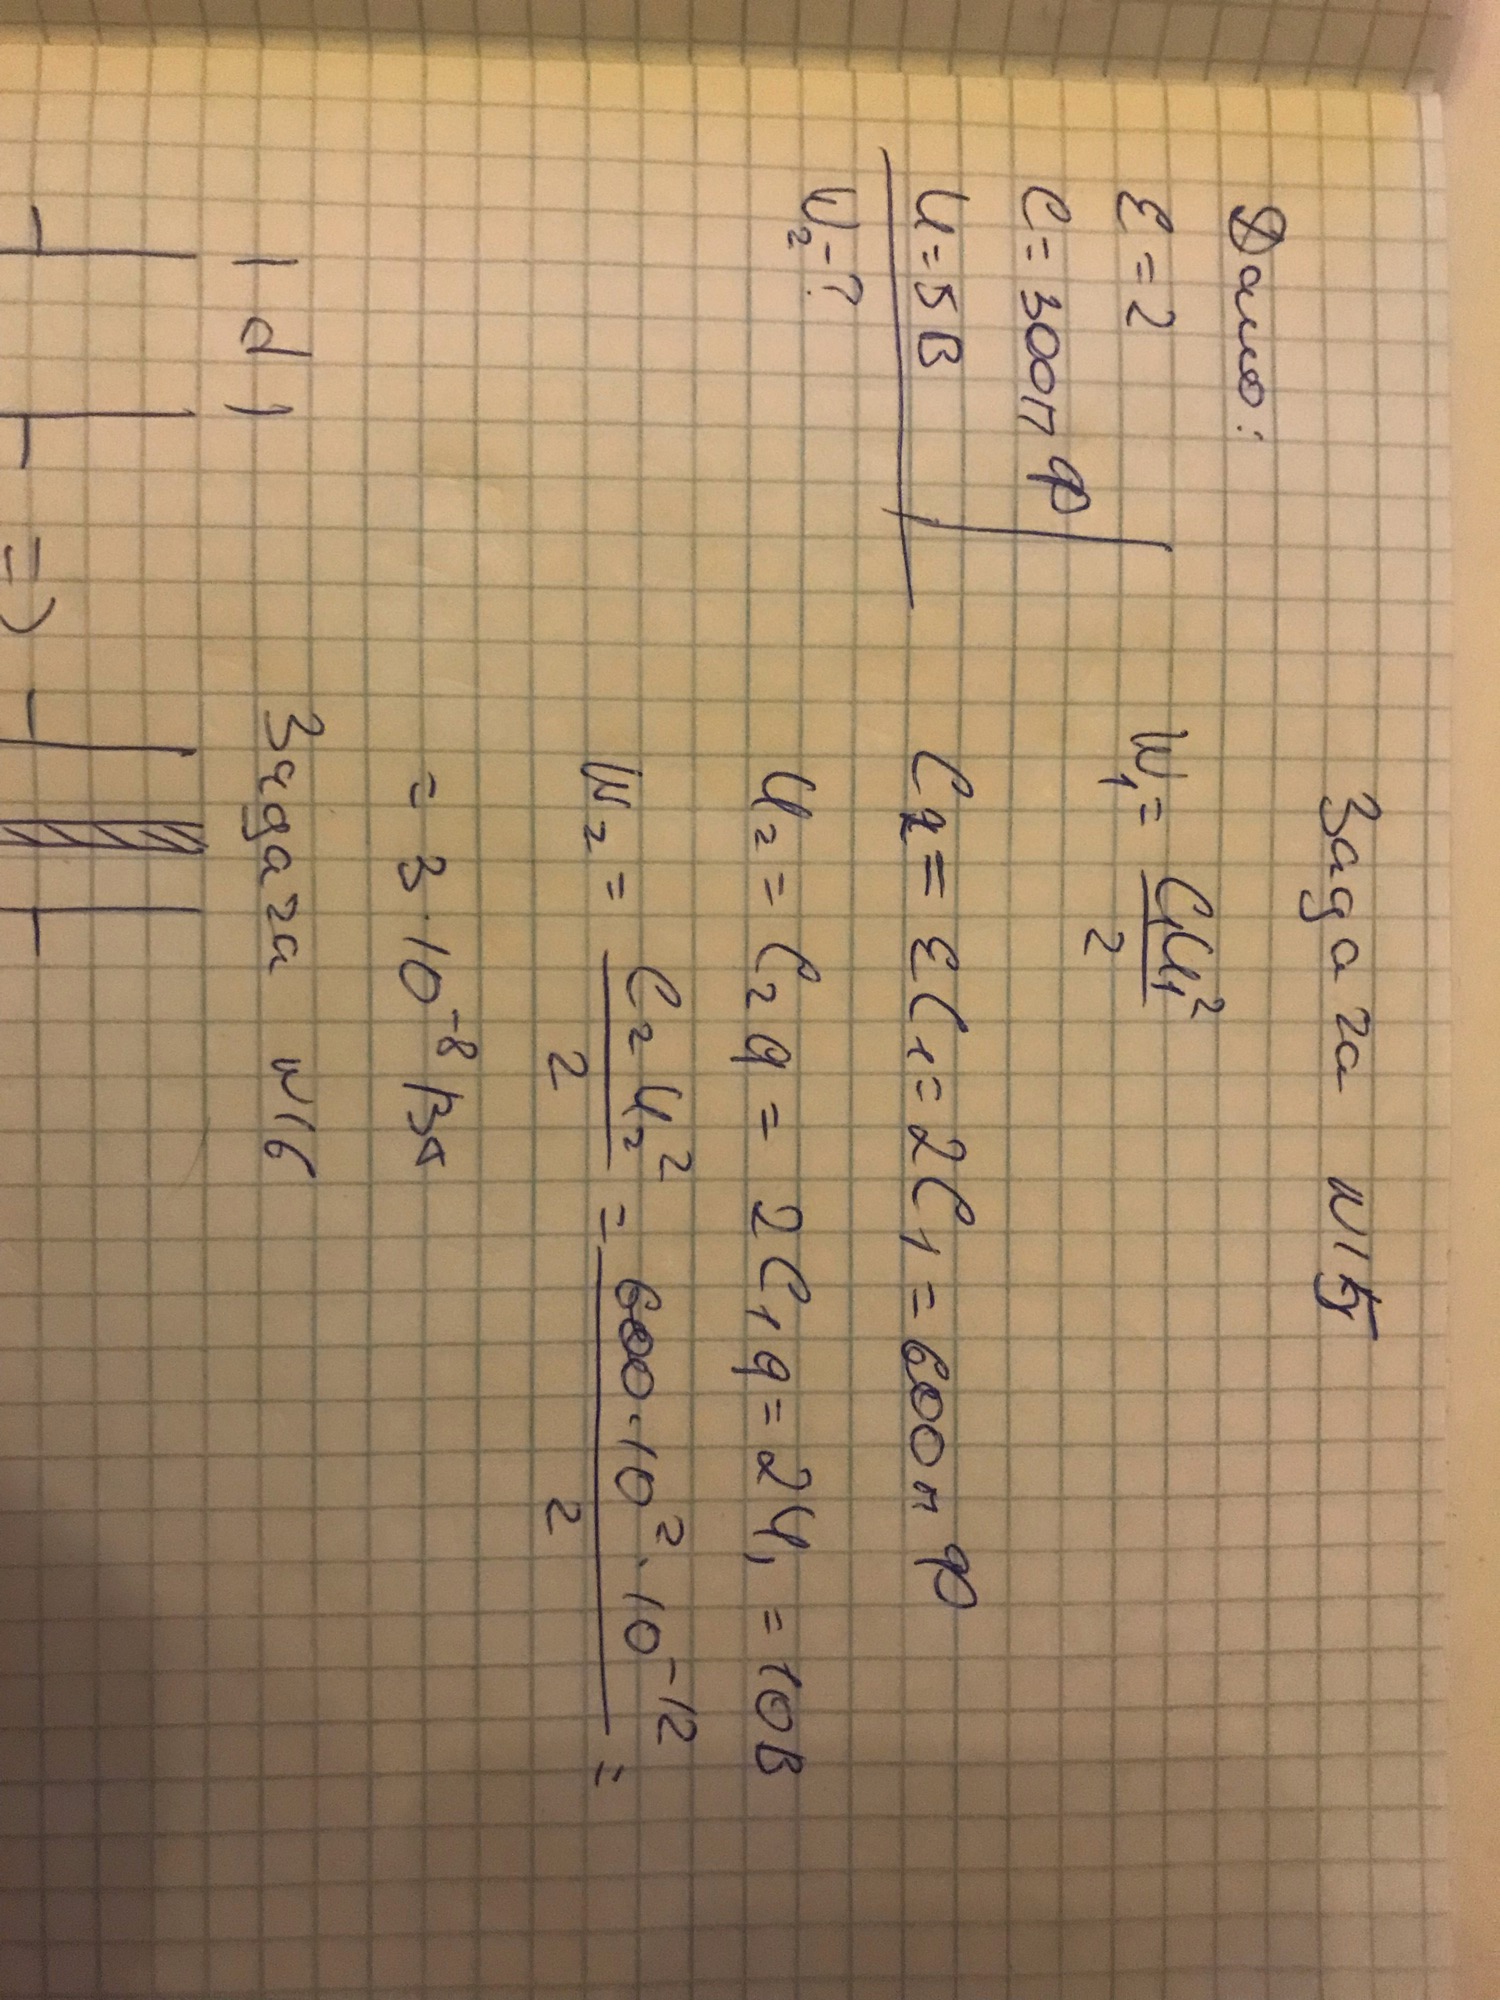 Задача №15
Дано:
ε = 2
C = 300пФ
U = 5В
W₂ - ?
W₁ = C₁U₁² / 2
C₂ = εC₁ = 2C₁ = 600пФ
U₂ = C₂q = 2C₁q = 2U₁ = 10В
W₂ = C₂U₂² / 2 = 600·10²·10⁻¹² / 2 =
= 3·10⁻⁸ Вт
Задача №16
| d |
=>